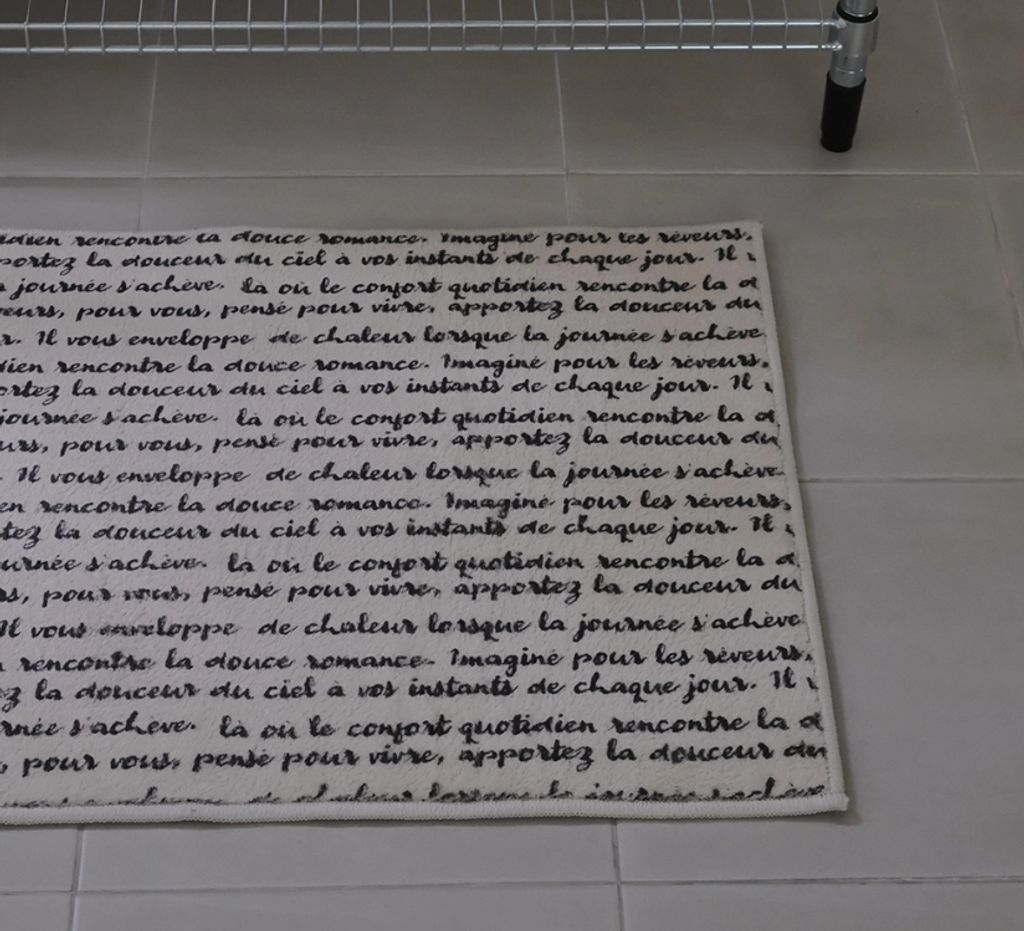 rencontre la douce romance. Imaginé pour les rêveurs,
portez la douceur du ciel à vos instants de chaque jour. Il
journée s'achève. là où le confort quotidien rencontre la d
eurs, pour vous, pensé pour vivre, apportez la douceur du
r. Il vous enveloppe de chaleur lorsque la journée s'achève
dien rencontre la douce romance. Imaginé pour les rêveurs,
ortez la douceur du ciel à vos instants de chaque jour. Il
journée s'achève. là où le confort quotidien rencontre la d
urs, pour vous, pensé pour vivre, apportez la douceur du
. Il vous enveloppe de chaleur lorsque la journée s'achève
en rencontre la douce romance. Imaginé pour les rêveurs,
tez la douceur du ciel à vos instants de chaque jour. Il
urnée s'achève. là où le confort quotidien rencontre la d
rs, pour vous, pensé pour vivre, apportez la douceur du
Il vous enveloppe de chaleur lorsque la journée s'achève
rencontre la douce romance. Imaginé pour les rêveurs,
ez la douceur du ciel à vos instants de chaque jour. Il
rnée s'achève. là où le confort quotidien rencontre la d
, pour vous, pensé pour vivre, apportez la douceur du
de chaleur lorsque la journée s'achève